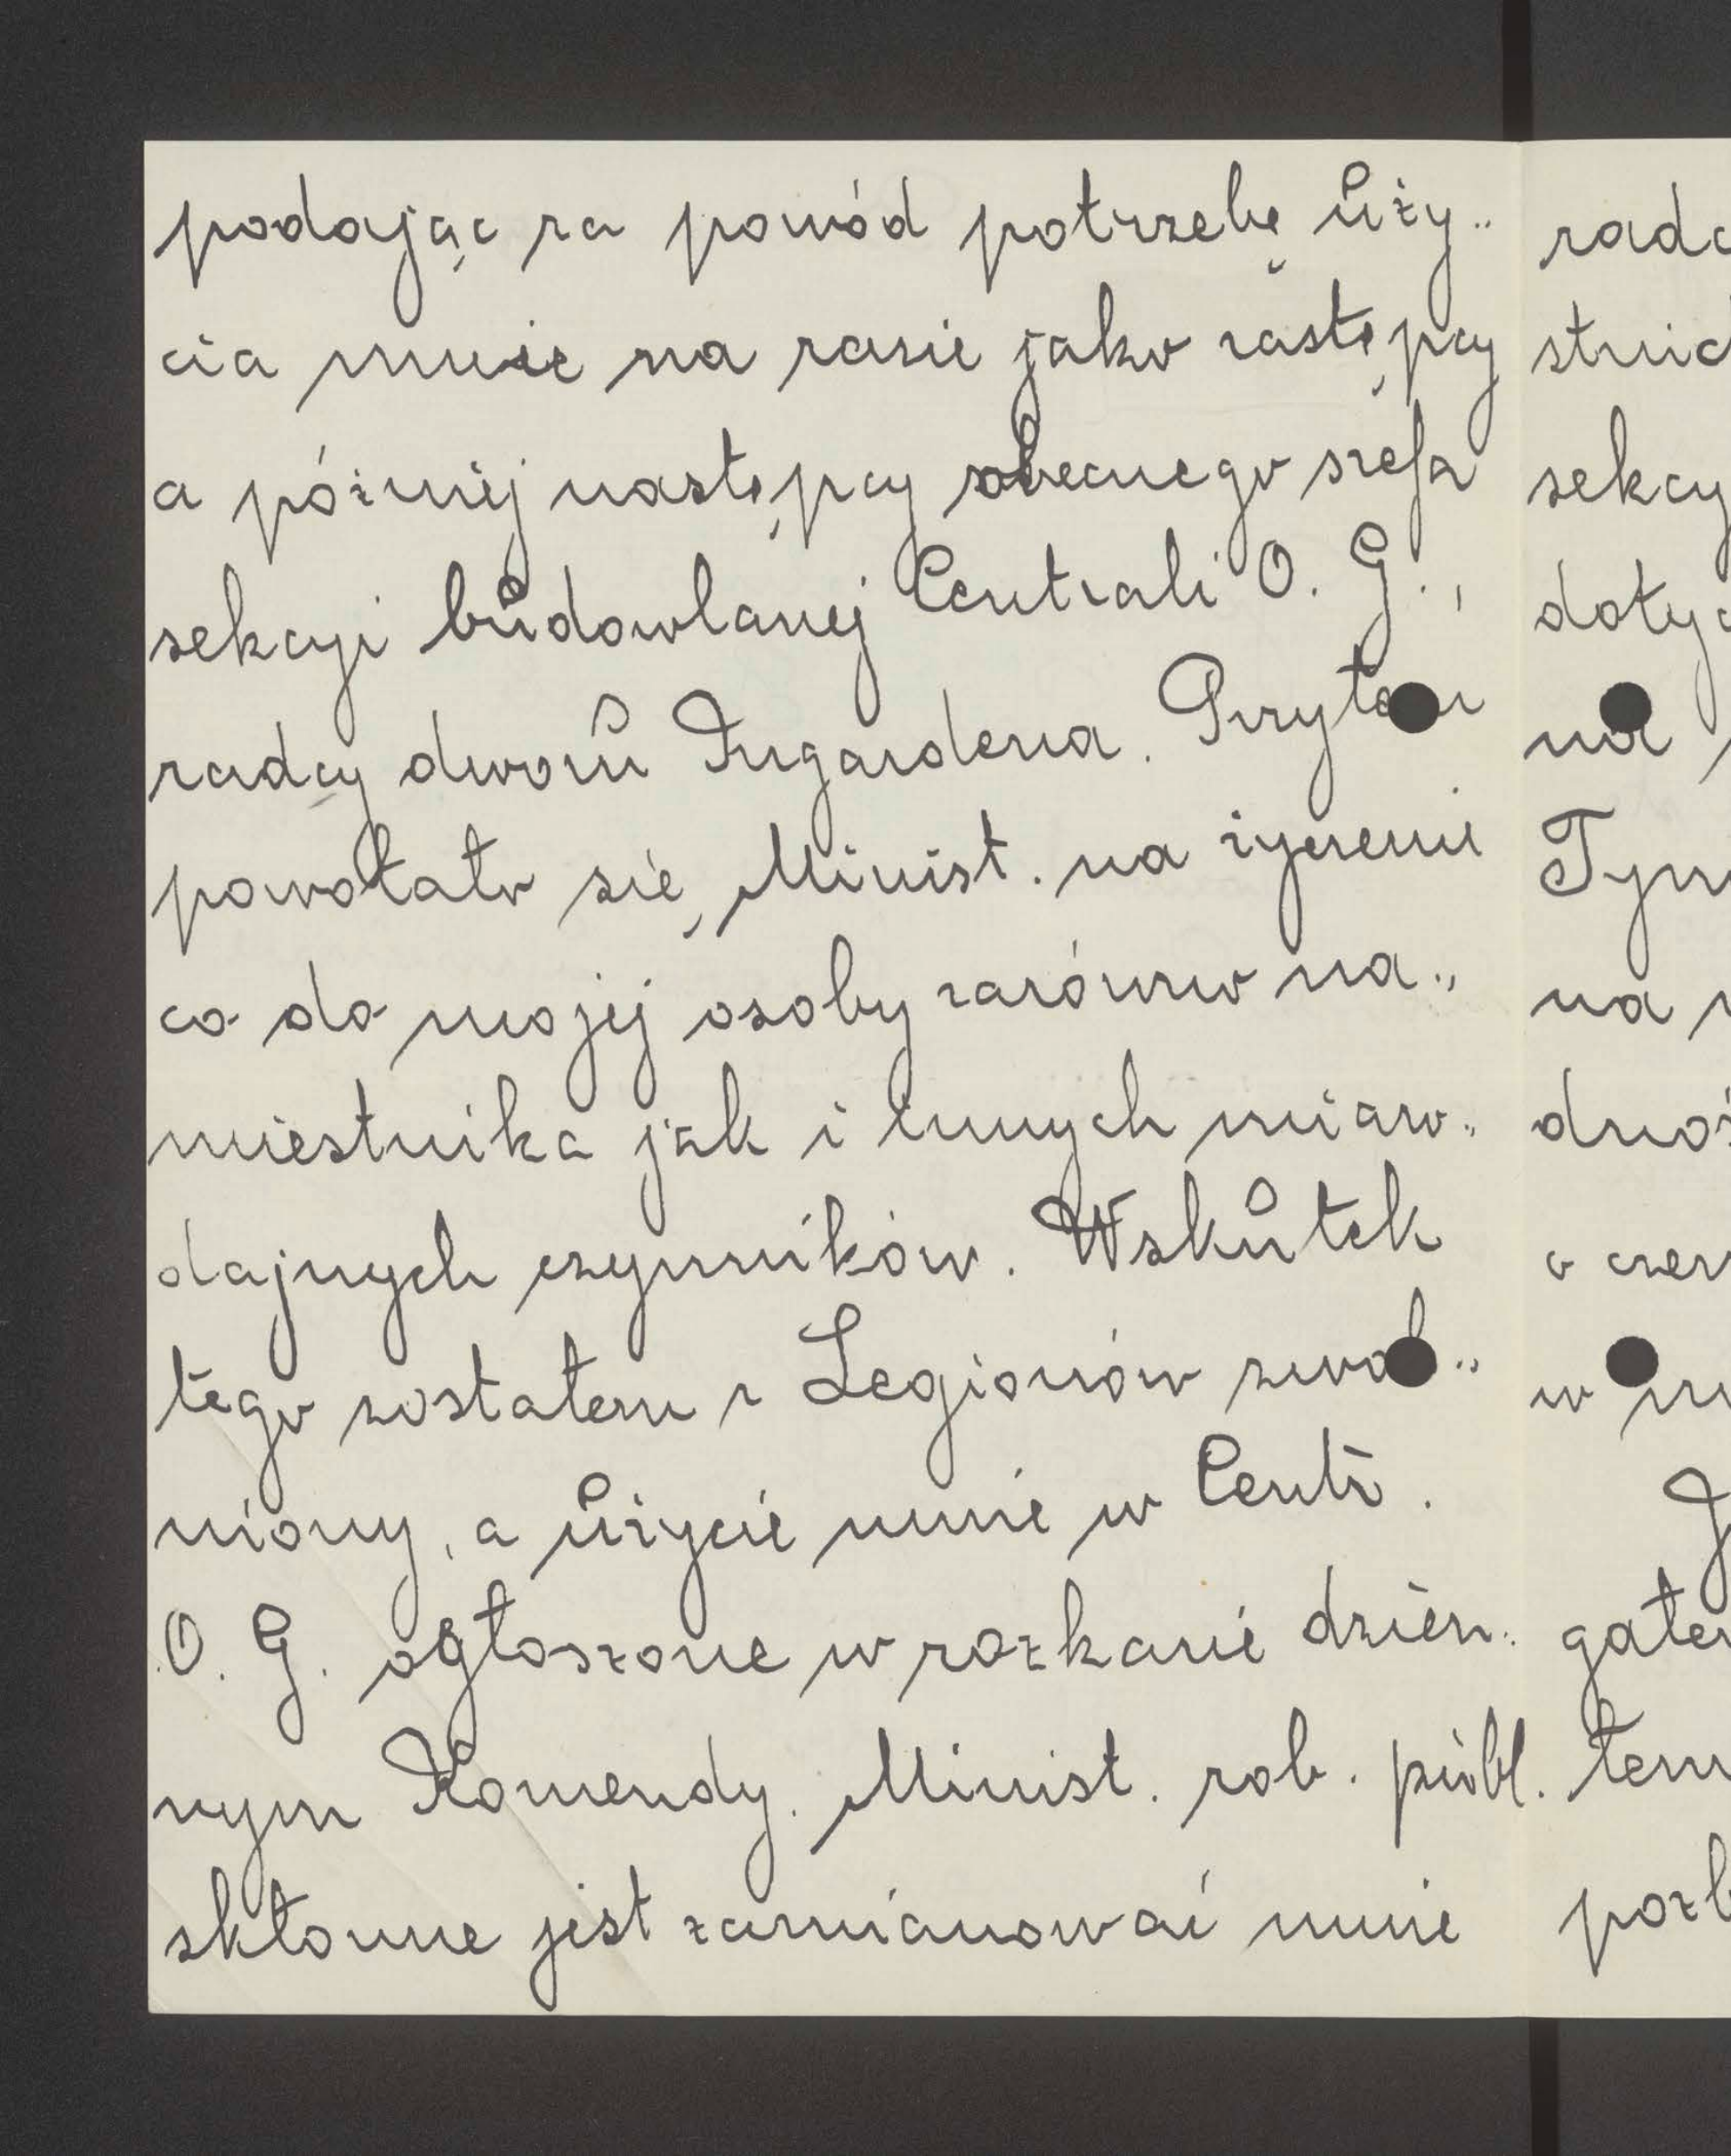 podając za powód potrzebę uży-
cia mnie na razie jako zastępcy
a później następcy obecnego szefa
sekcyi budowlanej Centrali O. G.,
radcy dworu Ingardena. Przytem
powołało się Minist. na życzenie
co do mojej osoby zarówno na-
miestnika jak i innych miaro-
dajnych czynników. Wskutek
tego zostałem z Legionów zwol-
niony, a użycie mnie w Centr.
O. G. ogłoszone w rozkazie dzien-
nym Komendy. Minist. rob. publ.
skłonne jest zamianować mnie